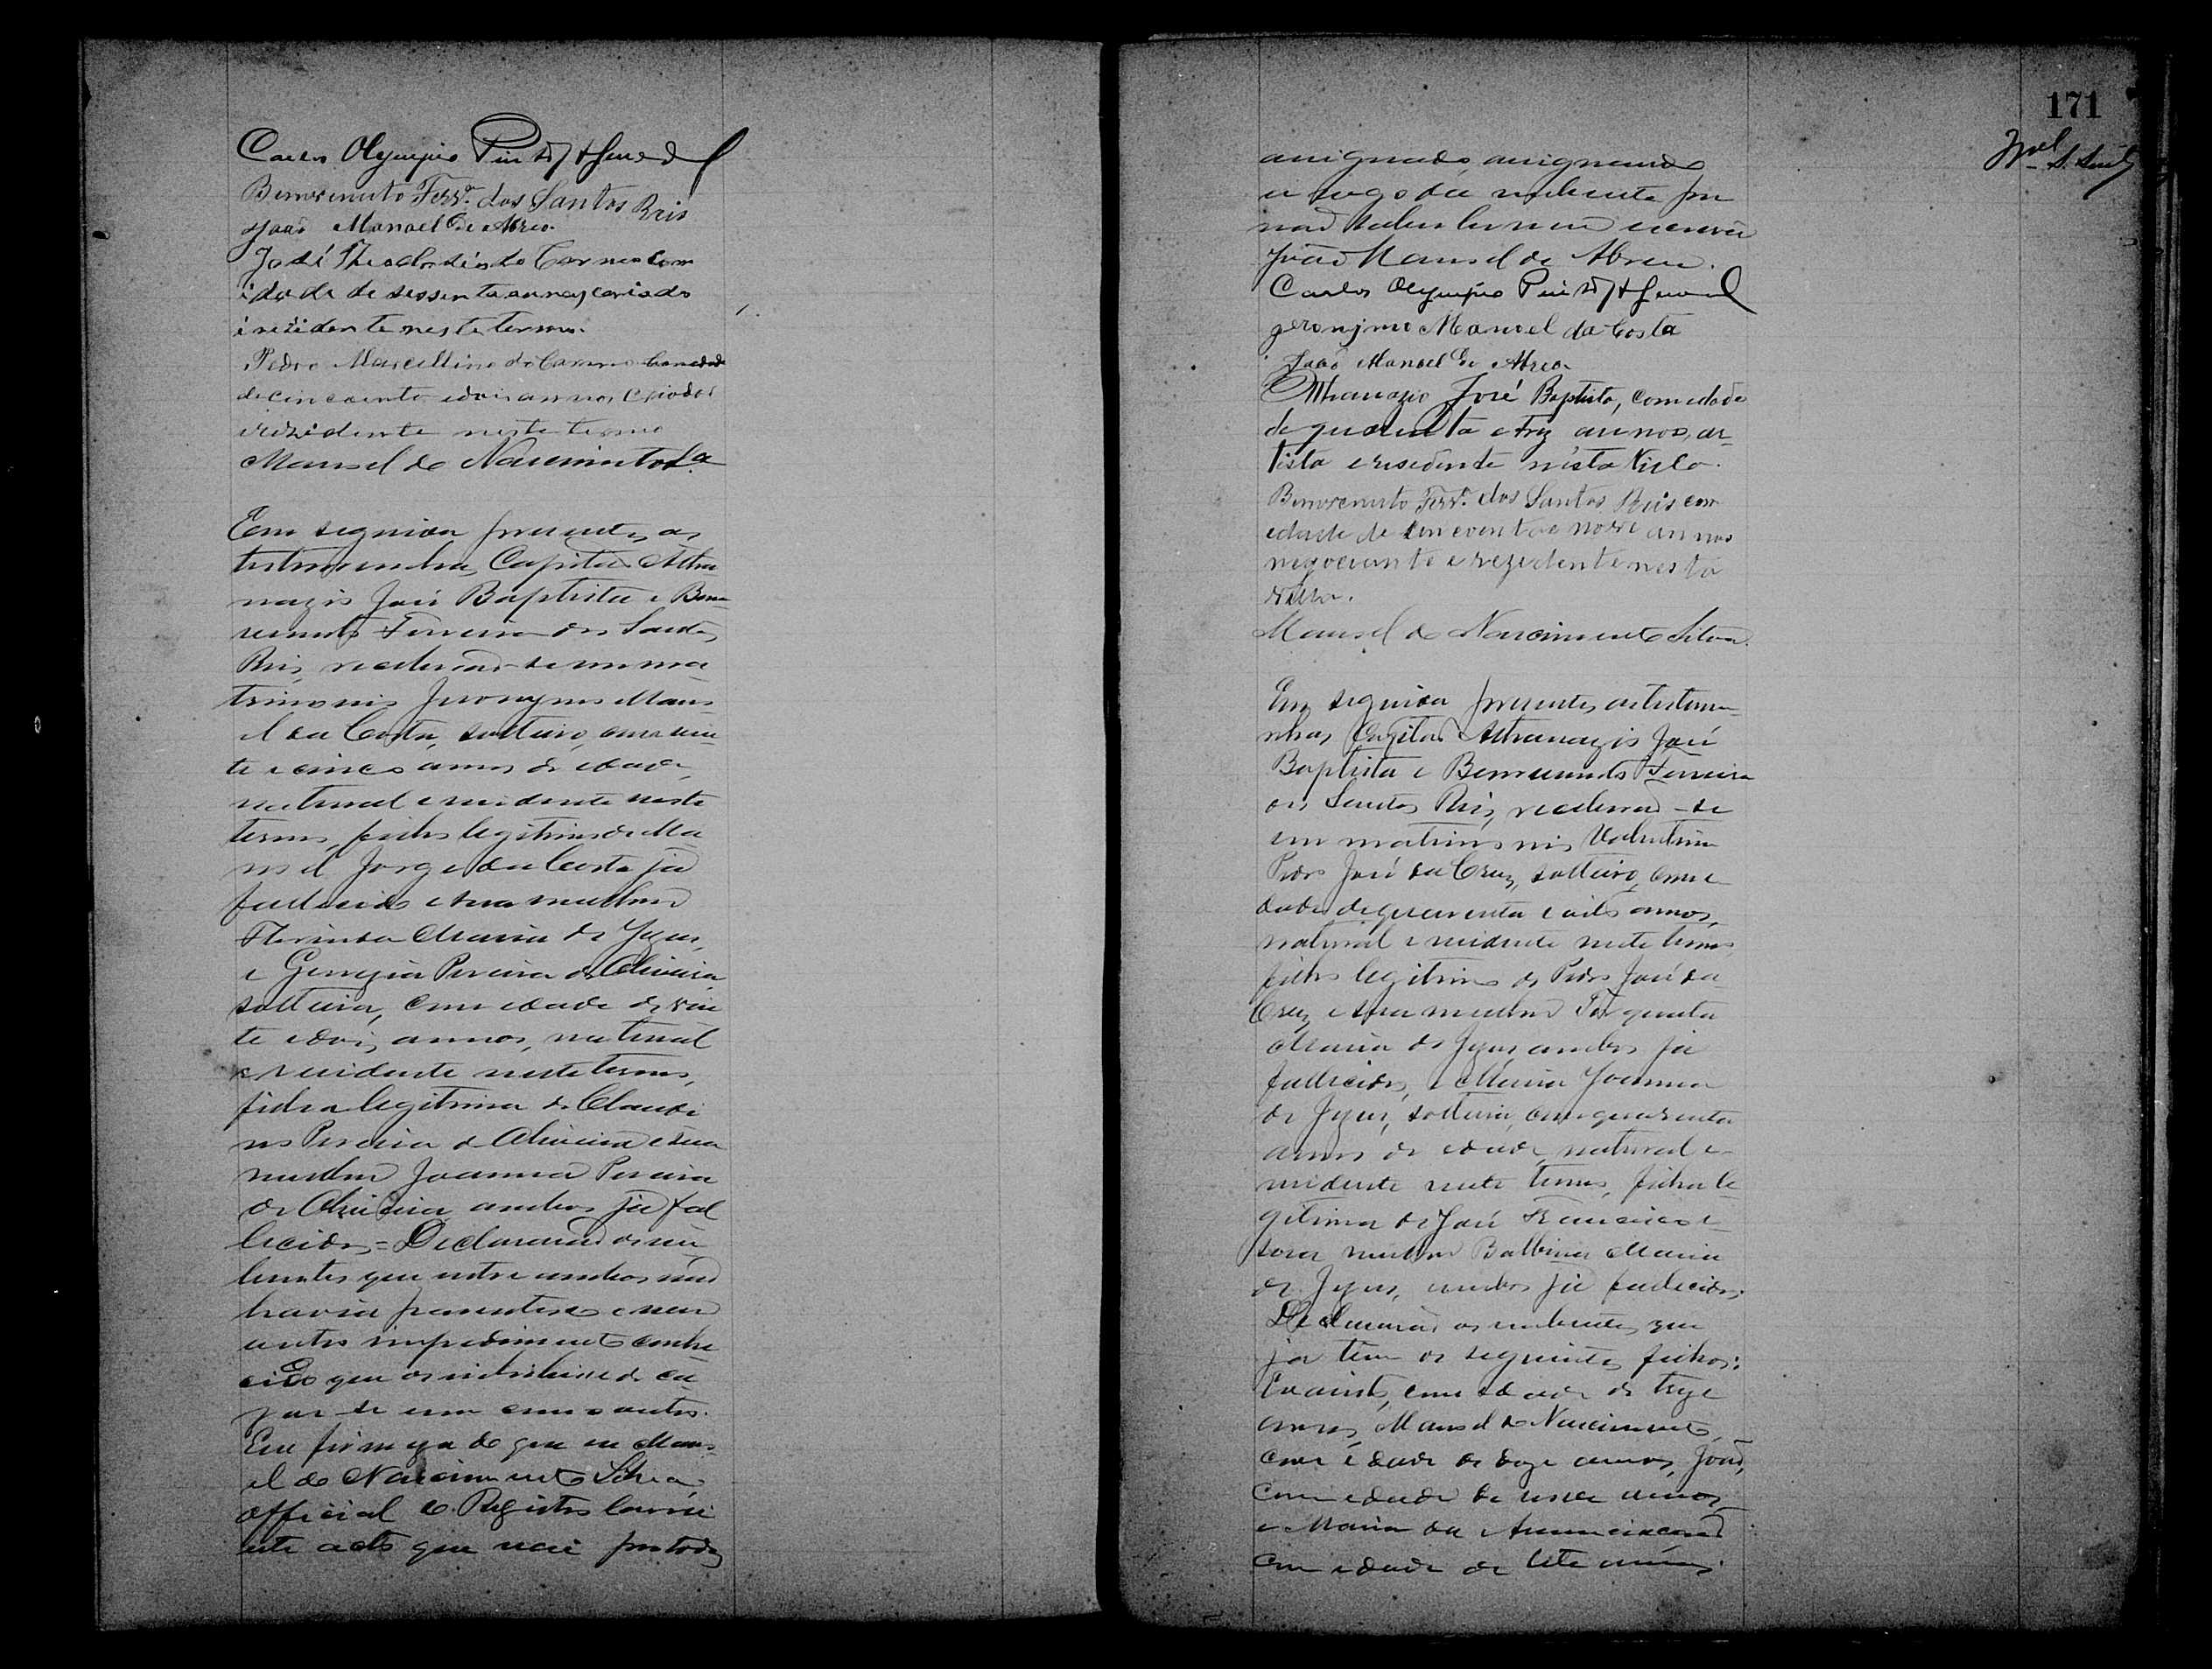 Carlos Olympio Pinto
Benvenuto Ferr.ª dos Santos Reis
João Manoel de Abreo.
José Theodosio do Carmo com
idade de sessenta annos casado
i rezidente neste termo.
Pedro Marcellino do Carmo com idade
de cincoenta e dois annos, criador
e rezidente neste termo
Manoel do Nascimento S.ª
Em seguida presentes as
testemunhas, Capitão Atha
nazio José Baptista e Benve
nuto Ferreira dos Santos
Reis, receberão-se em ma
trimonio Jeronymo Mano
el da Costa, solteiro, com vin
te e cinco annos de idade,
natural e residente neste
termo, filho legitimo de Ma
noel Jorge da Costa já
fallecido e sua mulher
Florinda Maria de Jezus,
e Pereira de Oliveira
solteira, com edade de vin
te e dois annos, natural
e residente neste termo,
filha legitima de Claudi
no Pereira de Oliveira e sua
mulher Joanna Pereira
de Oliveira ambos já fal
lecidos = Declararão os nu
bentes que entre ambos não
havia parentesco e nem
outro impedimento conhe
cido que os inhibisse de ca
zar-se um com o outro.
Em firmeza do que eu Mano
el do Nascimento Silva,
official do Registro lavrei
este acto que vai por todos
171
assignado, assignando
a rogo da nubente por
não saber ler nem escrever
João Manoel de Abreu.
Carlos Olympio Pinto
Jeronjmo Manoel da Costa
João Manoel de Abreo
Athanazio José Baptista, com edade
de quarenta e trez annos, ar
tista e residente nésta Villa.
Benvenuto Ferr.ª dos Santos Reis com
edade de cincoenta e nove annos
negociante e rezidente nesta
Villa.
Manoel do Nascimento Silva.
Em seguida presentes as testemu
nhas Capitão Athanazio José
Baptista e Benvenuto Ferreira
dos Santos Reis, receberão-se
em matrimonio
Pedro José da Cruz, solteiro, com e
dade de quarenta e oito annos,
natural e residente neste termo,
filho legitimo de Pedro José da
Cruz e sua mulher Torquata
Maria de Jezus, ambos já
fallecidos, e Maria Joanna
de Jezus, solteira, com quarenta
annos de edade, natural e
residente neste termo, filha le
gitima de José Francisco e
sua mulher Balbina Maria
de Jezus, ambos já fallecidos.
Declararão os nubentes que
já tem os seguintes filhos:
Evaristo, com edade de treze
annos, Manoel do Nascimento,
com edade de doze annos, João,
com edade de nove annos,
e Maria da Annunciação
com edade de sete annos.